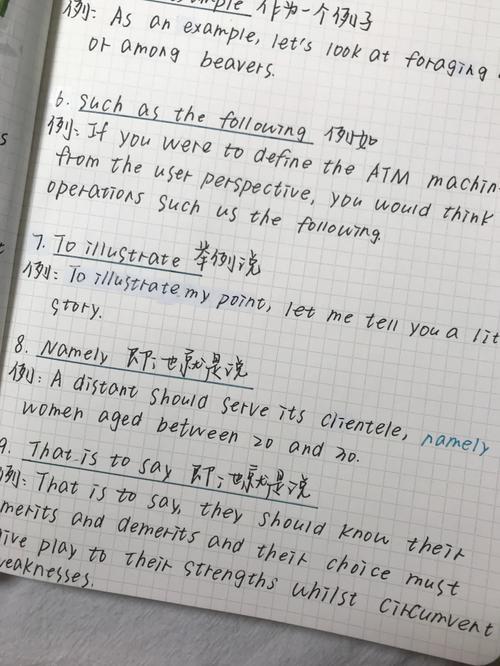 example 作为一个例子
例: As an example, let's look at foraging
or among beavers.
6. Such as the following 例如
例: If you were to define the ATM machin
from the user perspective, you would think
operations such us the following.
7. To illustrate 举例说
例: To illustrate my point, let me tell you a lit
story.
8. Namely 即;也就是说
例: A distant should serve its clientele, namely
women aged between 20 and 30.
9. That is to say 即;也就是说
例: That is to say, they should know their
merits and demerits and their choice must
ive play to their strengths whilst circumvent
weaknesses.